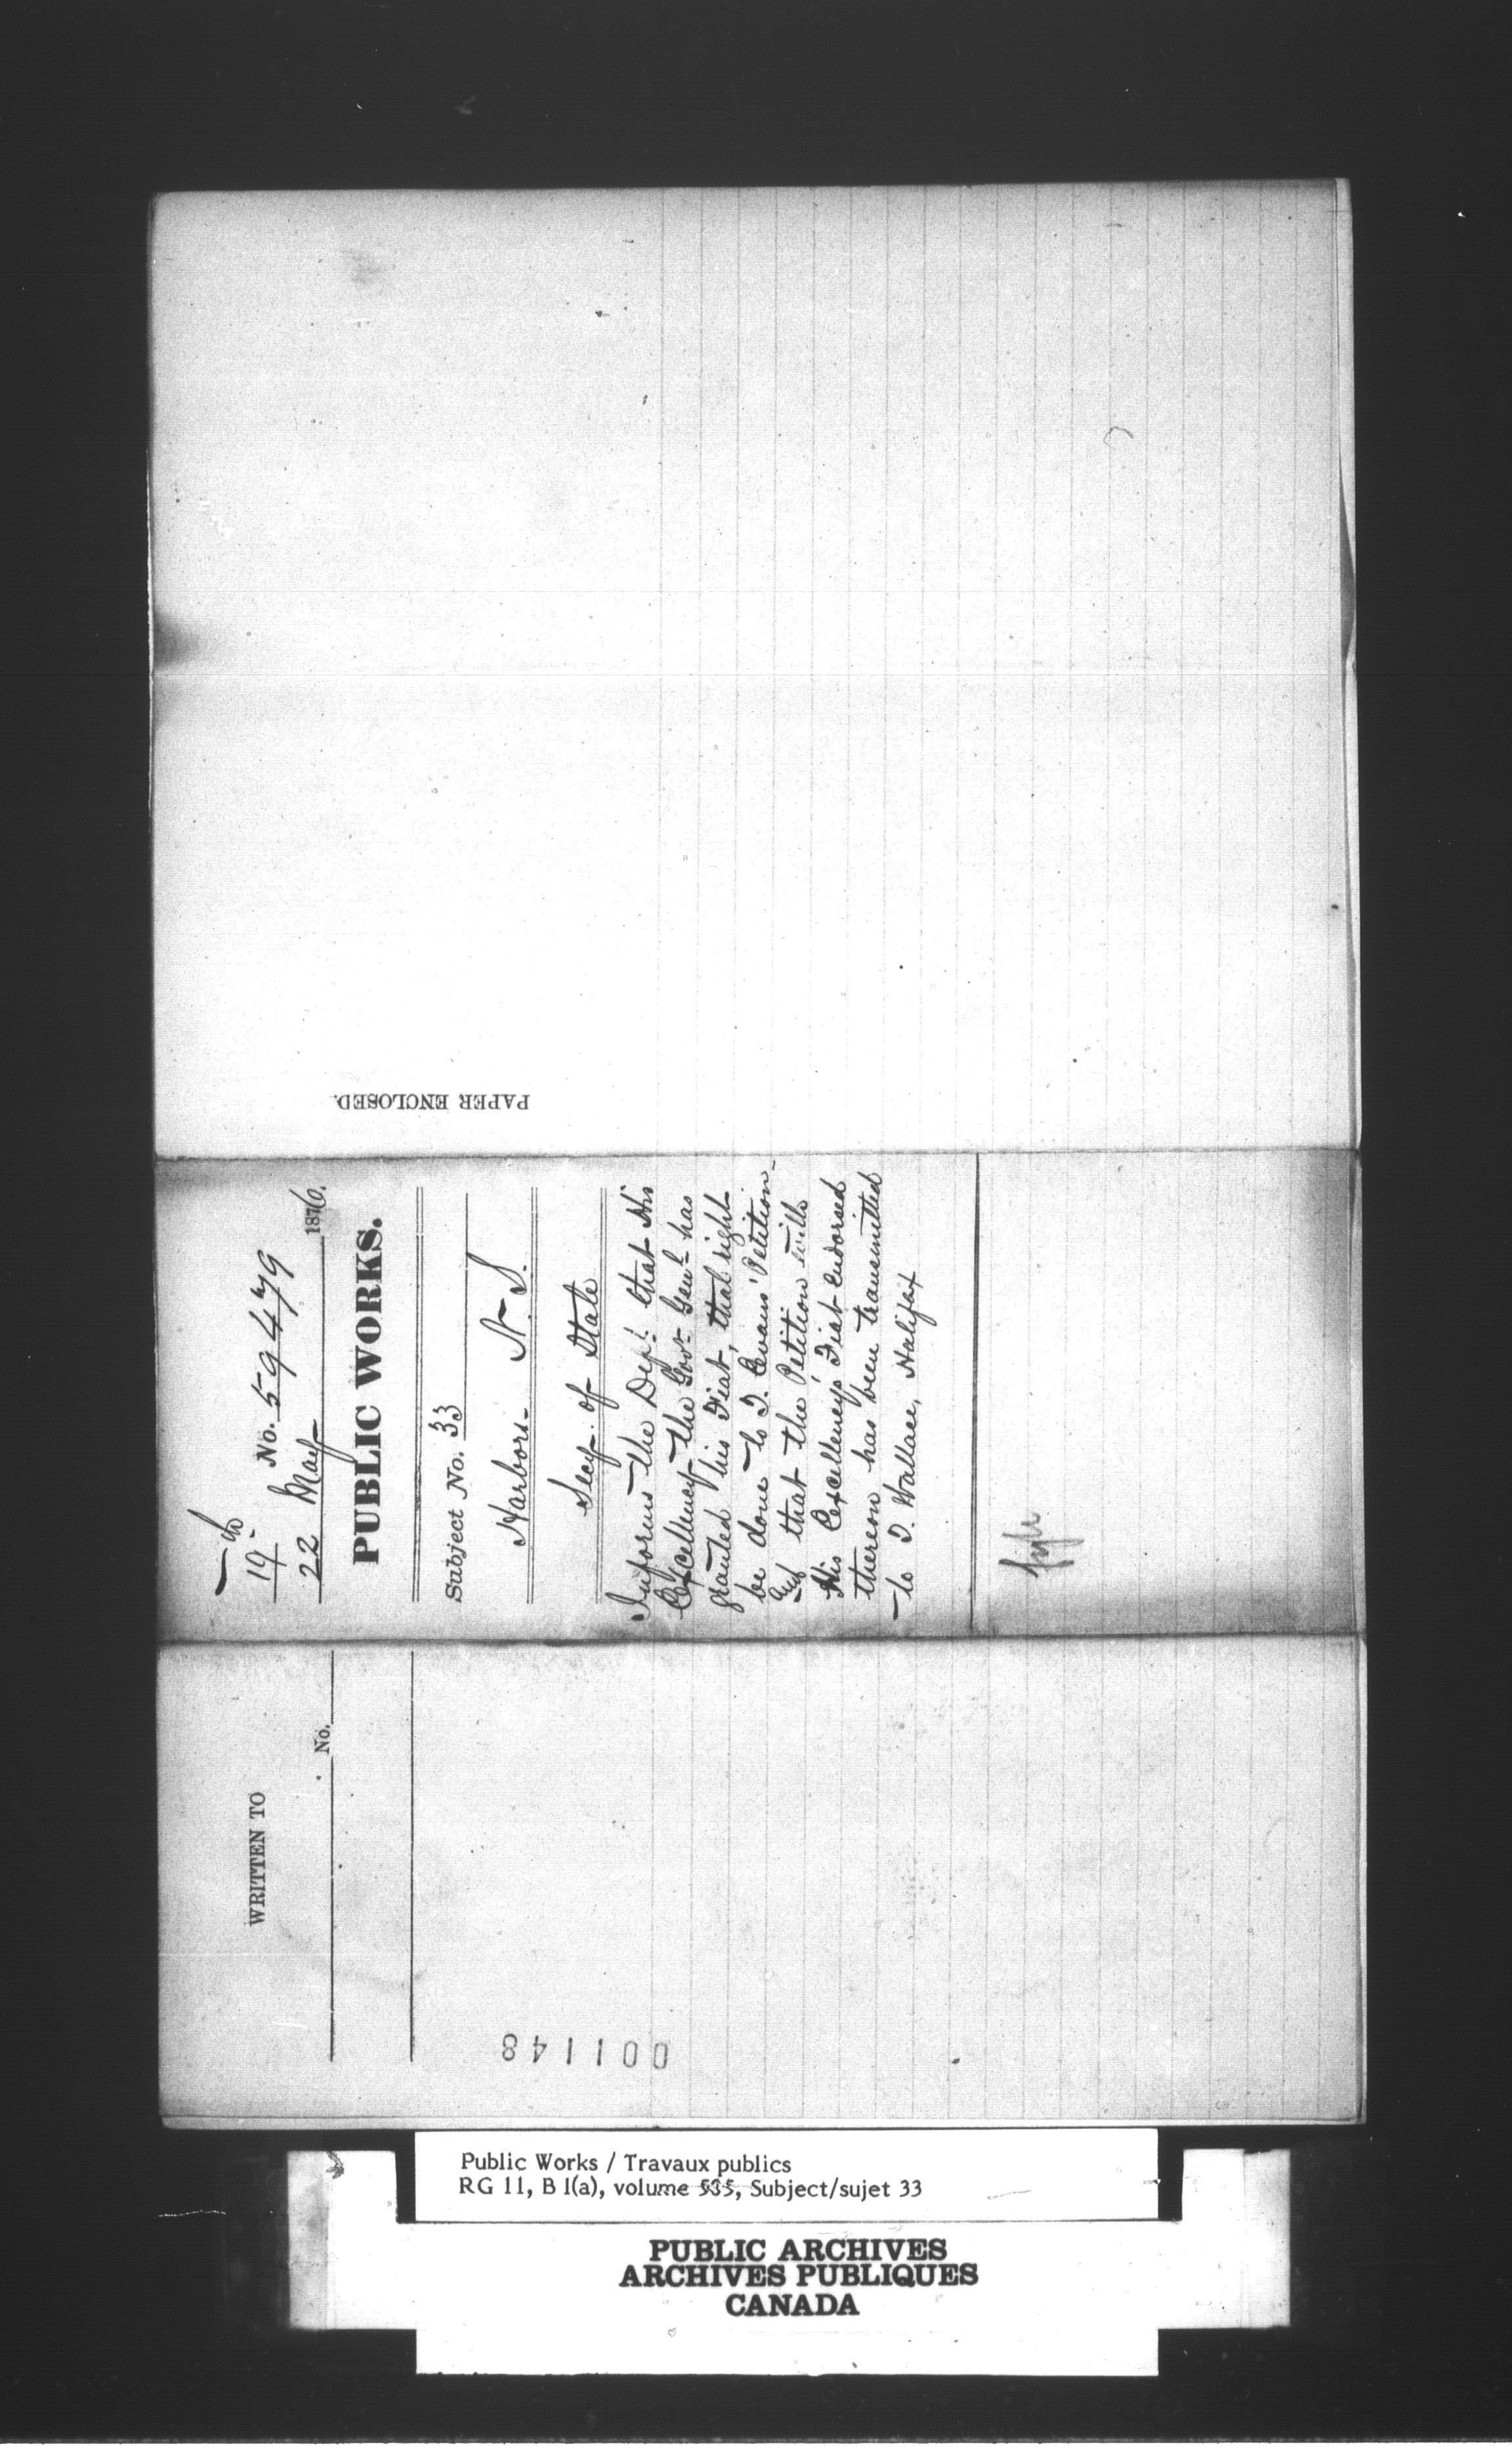 PAPER ENCLOSED.
19
No. 59479
22 May 1876.
PUBLIC WORKS.
Subject No. 33
Harbors N.S.
Secy. of State
Informs the Dept. that His
Excellency the Govr. Genl. has
granted his Fiat, that right
be done to T. Evans' Petition
and that the Petition with
His Excellency's Fiat endorsed
thereon has been transmitted
to T. Wallace, Halifax
WRITTEN TO
No.
001148
Public Works / Travaux publics
RG 11, B 1(a), volume 535, Subject/sujet 33
PUBLIC ARCHIVES
ARCHIVES PUBLIQUES
CANADA